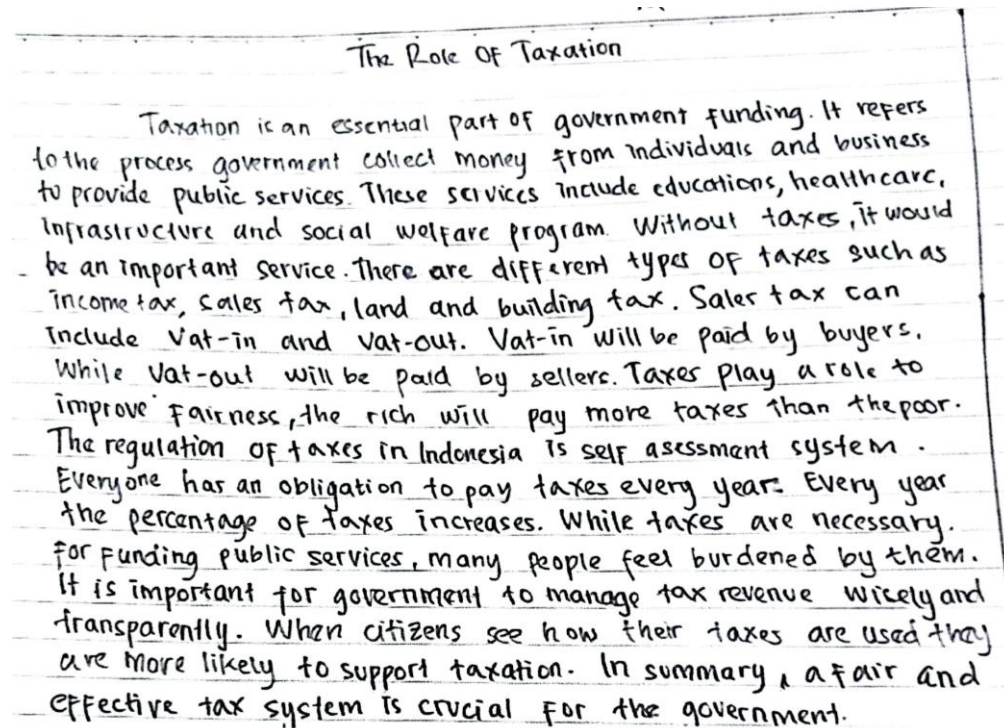 The Role Of Taxation
Taxation is an essential part of government funding. It refers
to the process government collect money from individuals and business
to provide public services. These services include educations, healthcare,
infrastructure and social walfare program. Without taxes, it would
be an important service. There are different types of taxes such as
income tax, sales tax, land and building tax. Saler tax can
include Vat-in and Vat-out. Vat-in will be paid by buyers.
While Vat-out will be paid by sellers. Taxes play a role to
improve fairness, the rich will pay more taxes than the poor.
The regulation of taxes in Indonesia is self asessment system.
Everyone has an obligation to pay taxes every year. Every year
the percentage of taxes increases. While taxes are necessary.
for funding public services, many people feel burdened by them.
It is important for government to manage tax revenue wicely and
transparently. When citizens see how their taxes are used they
are more likely to support taxation. In summary, a fair and
effective tax system is crucial for the government.